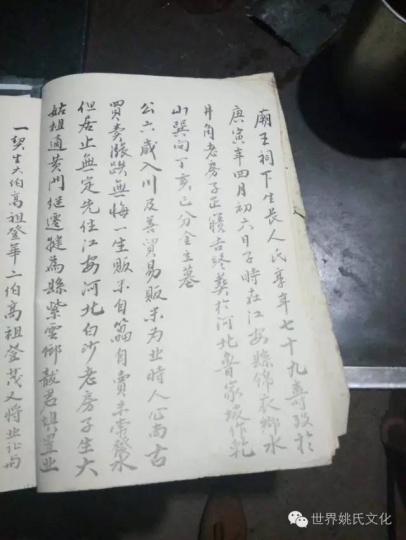 廟王祠下生長人氏享年七十九壽歿於
庚寅年四月初六日子時在江安縣錦衣鄉水
井角老房子正寢古終葬於河北魯家坡作乾
山巽向丁亥巳分金立墓
公六歲入川及善貿易販米為業時人心尚古
買賣漲跌無悔一生販米自篩自賣未嘗發水
但居止無定先住江安河北白沙老房子生大
姑祖適黃門繼遷犍為縣紫雲鄉置業
一契生大伯高祖登華二伯高祖登茂又將業讓與
世界姚氏文化